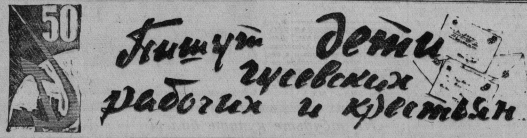 50
Пишут дети
гусевских
рабочих и крестьян.